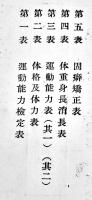 第一表　運動能力檢定表
第二表　体格及体力表
第三表　運動能力表(其一)(其二)
第四表　体重身長消長表
第五表　固癖矯正表